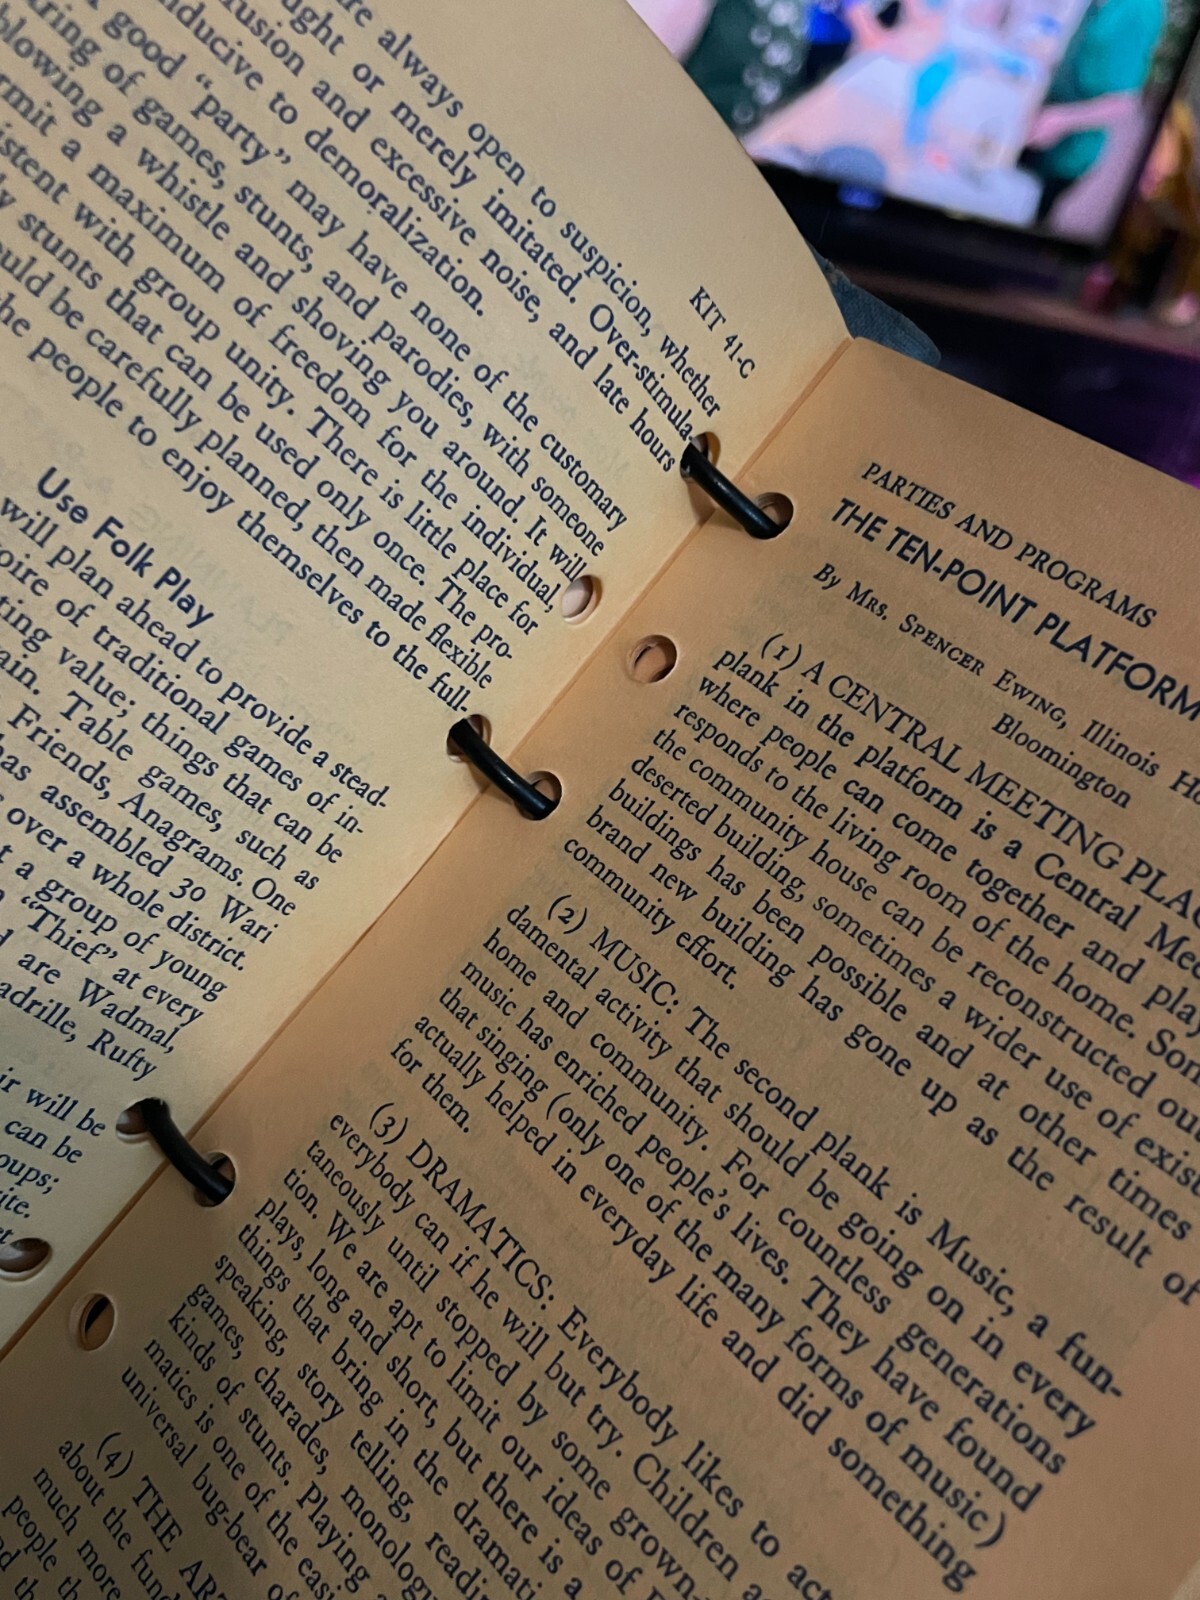 KIT 41-C
are always open to suspicion, whether
or merely imitated. Over-stimula-
and excessive noise, and late hours
to demoralization.
good “party” may have none of the customary
of games, stunts, and parodies, with someone
blowing a whistle and shoving you around. It will
a maximum of freedom for the individual,
with group unity. There is little place for
stunts that can be used only once. The pro-
be carefully planned, then made flexible
people to enjoy themselves to the full-
Use Folk Play
will plan ahead to provide a stead-
of traditional games of in-
value; things that can be
Table games, such as
Friends, Anagrams. One
has assembled 30 Wari
over a whole district.
a group of young
“Thief” at every
are Wadmal,
Rufty
will be
can be
PARTIES AND PROGRAMS
THE TEN-POINT PLATFORM
By MRS. SPENCER EWING, Illinois
Bloomington
(1) A CENTRAL MEETING
plank in the platform is a Central
where people can come together and
responds to the living room of the home.
the community house can be reconstructed
deserted building, sometimes a wider use of
buildings has been possible and at other times
brand new building has gone up as the result of
community effort.
(2) MUSIC: The second plank is Music, a fun-
damental activity that should be going on in every
home and community. For countless generations
music has enriched people’s lives. They have found
that singing (only one of the many forms of music)
actually helped in everyday life and did something
for them.
(3) DRAMATICS: Everybody likes to act
everybody can if he will but try. Children
taneously until stopped by some grown-
tion. We are apt to limit our ideas of
plays, long and short, but there is a
things that bring in the
speaking, story telling,
games, charades,
kinds of stunts. Playing
matics is one of the
universal bug-bear of
(4) THE
about the
much more
people